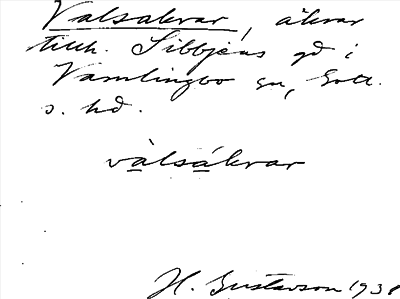 Valsakrar, åkrar
tillh. Sibbjäns gd i
Vamlingbo sn, Gotl.
s. hd.
valsákrar
H. Gustavson 1938